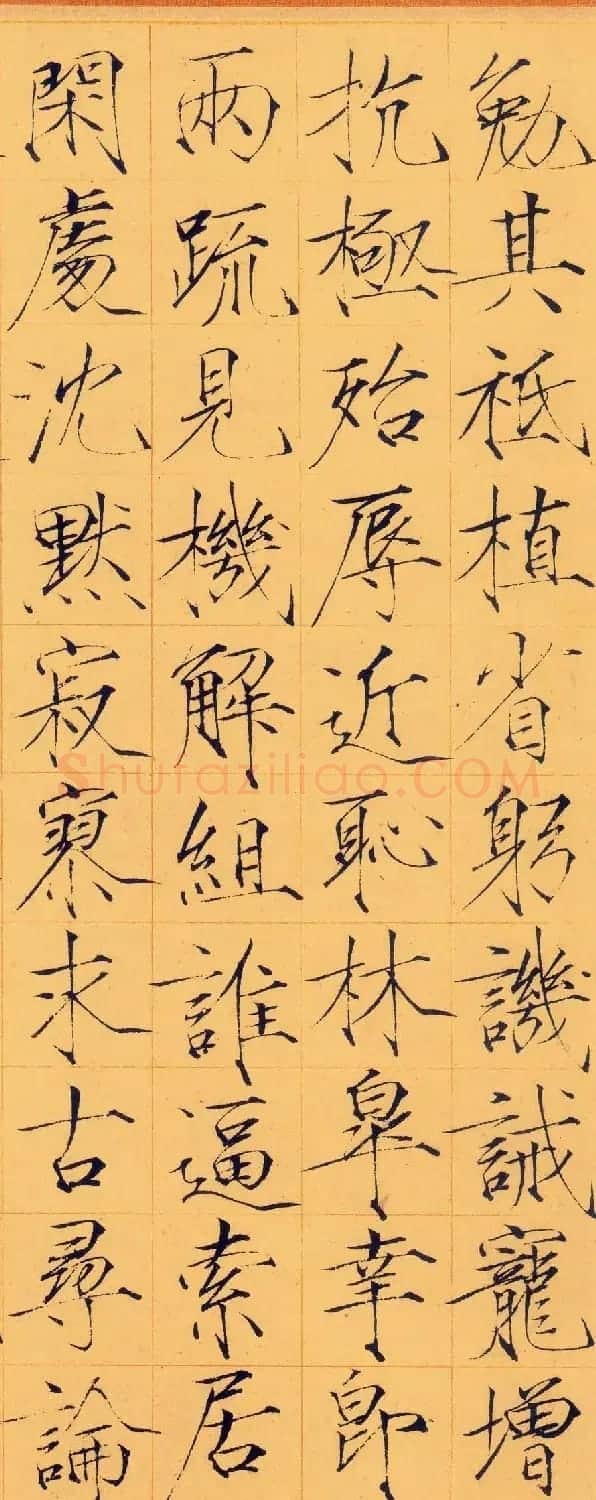 勉其祗植省躬譏誡寵增
抗極殆辱近恥林皐幸即
兩疏見機解組誰逼索居
閑處沈默寂寥求古尋論
Shufaziliao.COM